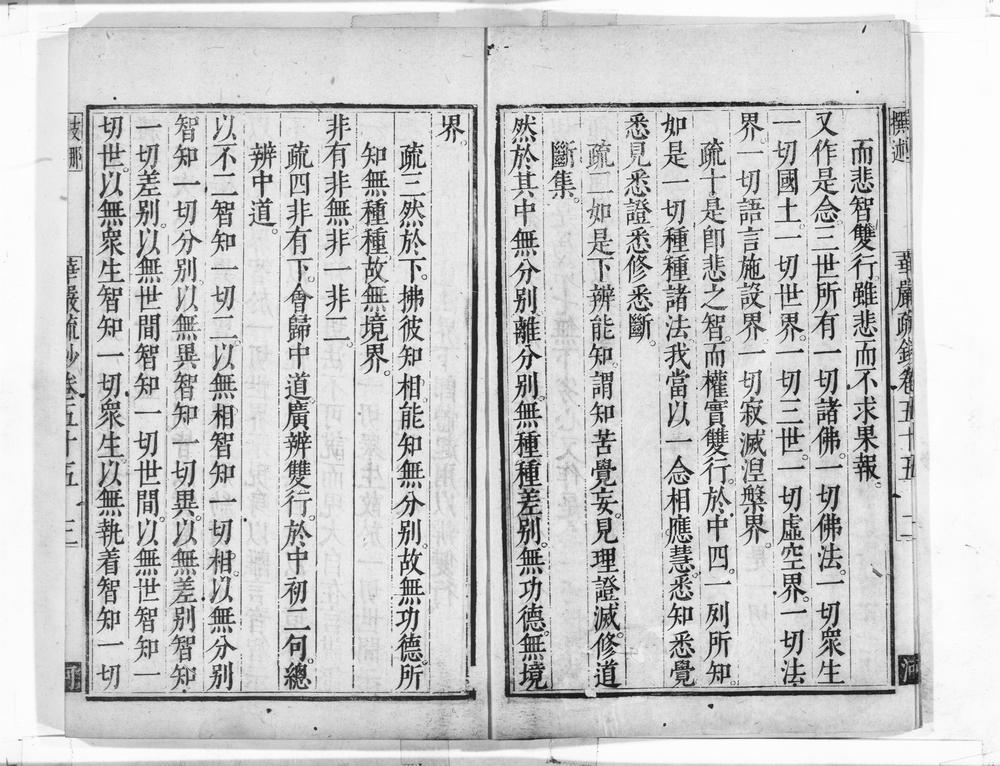 撰述
華嚴疏鈔卷五十五
二
河
而悲智雙行雖悲而不求果報。
又作是念三世所有一切諸佛。一切佛法。一切衆生
一切國土。一切世界。一切三世。一切虛空界。一切法
界。一切語言施設界。一切寂滅涅槃界。
疏十是卽悲之智。而權實雙行。於中四。一列所知。
如是一切種種諸法。我當以一念相應慧。悉知悉覺
悉見悉證悉修悉斷。
疏二如是下辨能知。謂知苦覺妄。見理證滅。修道
斷集。
然於其中無分別離分別。無種種差別。無功德。無境
界。
疏三然於下。拂彼知相。能知無分別。故無功德。所
知無種種。故無境界。
非有非無。非一非二。
疏四非有下。會歸中道。廣辨雙行。於中初二句。總
辨中道。
以不二智知一切二。以無相智知一切相。以無分別
智知一切分別。以無異智知一切異。以無差別智知
一切差別。以無世間智知一切世間。以無世智知一
切世。以無衆生智知一切衆生。以無執着智知一切
華嚴疏鈔卷五十五
三
河